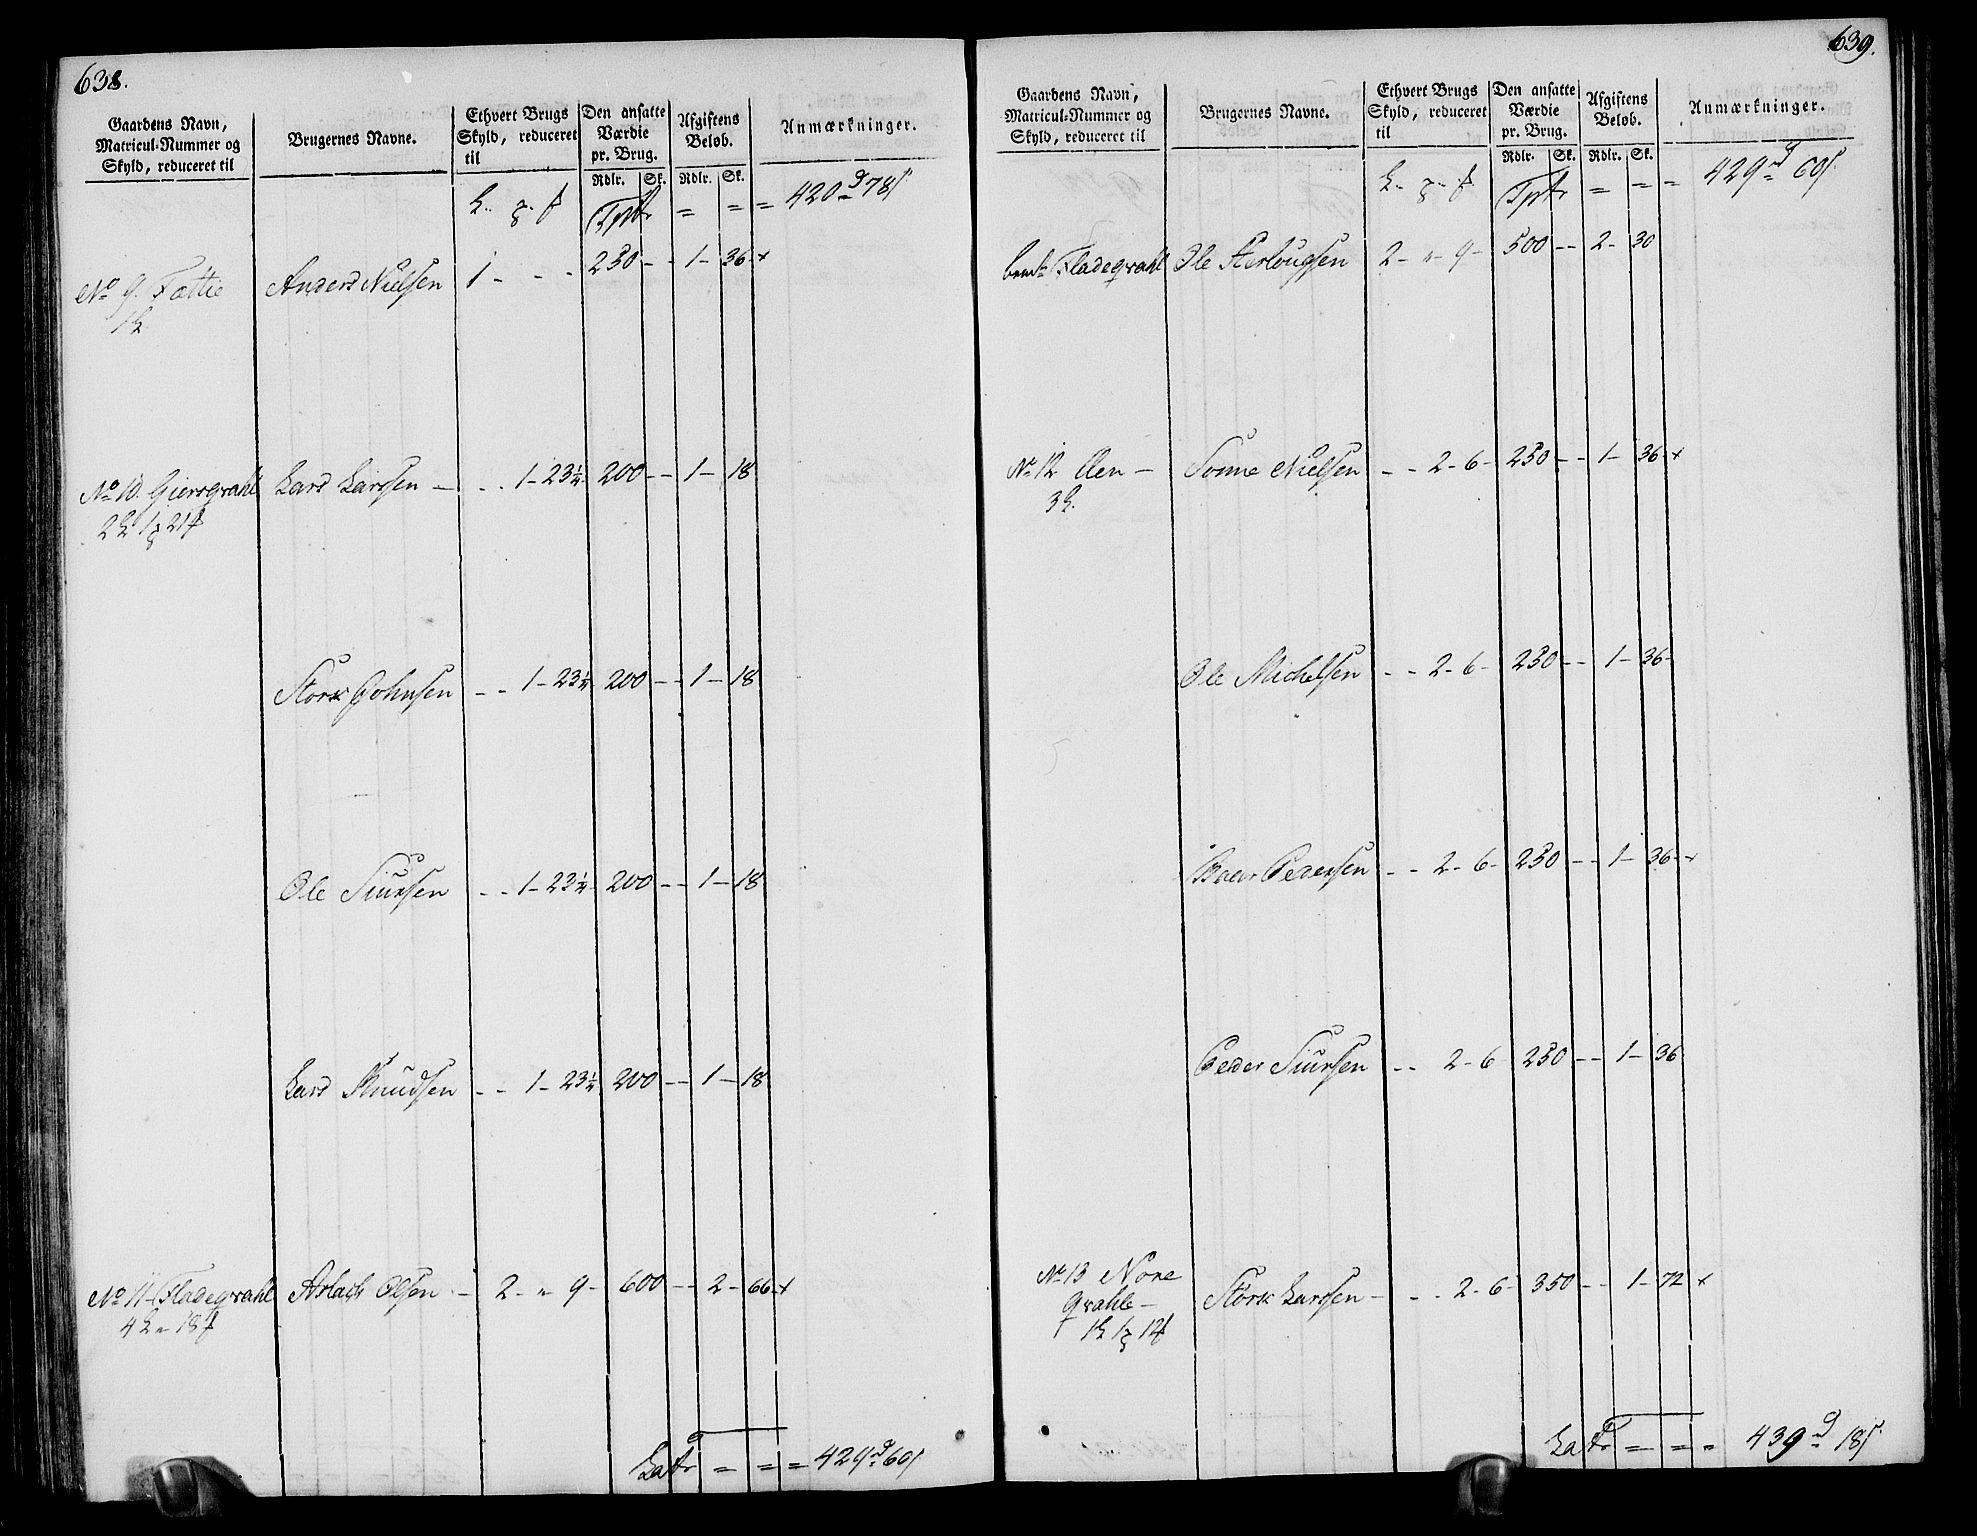 638.
Gaardens Navn, Matricul-Nummer og Skyld, reduceret til
Brugernes Navne.
Ethvert Brugs Skyld, reduceret til
Den ansatte Værdie pr. Brug.
Afgiftens Beløb.
Anmærkninger.
Rdlr. Sk. Rdlr. Sk.
Tpt = = = 420 78
No 9. Fættie Anders Nielsen 1 - - - 250 - - 1 - 36 +
No 10. Giersqvahl Lars Larssen - - - 1 - 23¼ 200 - - 1 - 18
Johnsen - - 1 - 23¼ 200 - - 1 - 18
Ole Siursen - - 1 - 23¼ 200 - - 1 - 18
Lars Knudsen - - 1 - 23¼ 200 - - 1 - 18
No 11 Fladeqvahl Aslach Olsen - 2 - " 9 - 600 - - 2 - 66 +
Lat = = = 429 60
639.
Gaardens Navn, Matricul-Nummer og Skyld, reduceret til
Brugernes Navne.
Ethvert Brugs Skyld, reduceret til
Den ansatte Værdie pr. Brug.
Afgiftens Beløb.
Anmærkninger.
Rdlr. Sk. Rdlr. Sk.
Tpt = = = 429 60
Fladeqvahl Ole Herlougsen 2 - " 9 - 500 - - 2 - 30
No 12 Aen - Sonne Nielsen - - 2 - 6 - 250 - - 1 - 36 +
Ole Michelsen - - 2 - 6 - 250 - - 1 - 36 -
Pedersen - - 2 - 6 - 250 - - 1 - 36 +
Peder Siursen - - 2 - 6 250 - - 1 - 36
No 13 Nore
qvahle - Larssen - - - 2 - 6 - 350 - - 1 - 72 +
Lat = = = 439 18